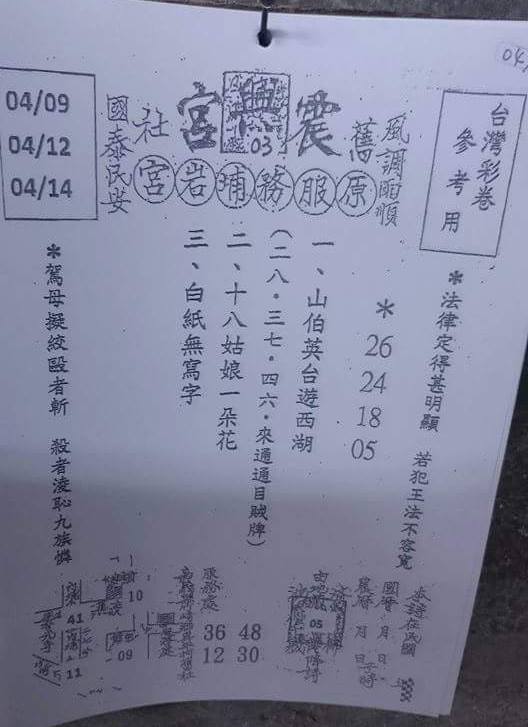 04
台灣彩卷
參考用
風調雨順
舊
震興宮
03
社
國泰民安
原服務埔岩宮
04/09
04/12
04/14
*法律定得甚明顯 若犯王法不容寬
*
26
24
18
05
一、山伯英台遊西湖
(二八·三七·四六·來通通目賊牌)
二、十八姑娘一朵花
三、白紙無寫字
*駕母擬絞毆者斬 殺者凌恥九族憐
國曆 月 日
農曆 月 日
05
服務處
48
30
36
12
10
09
41
11